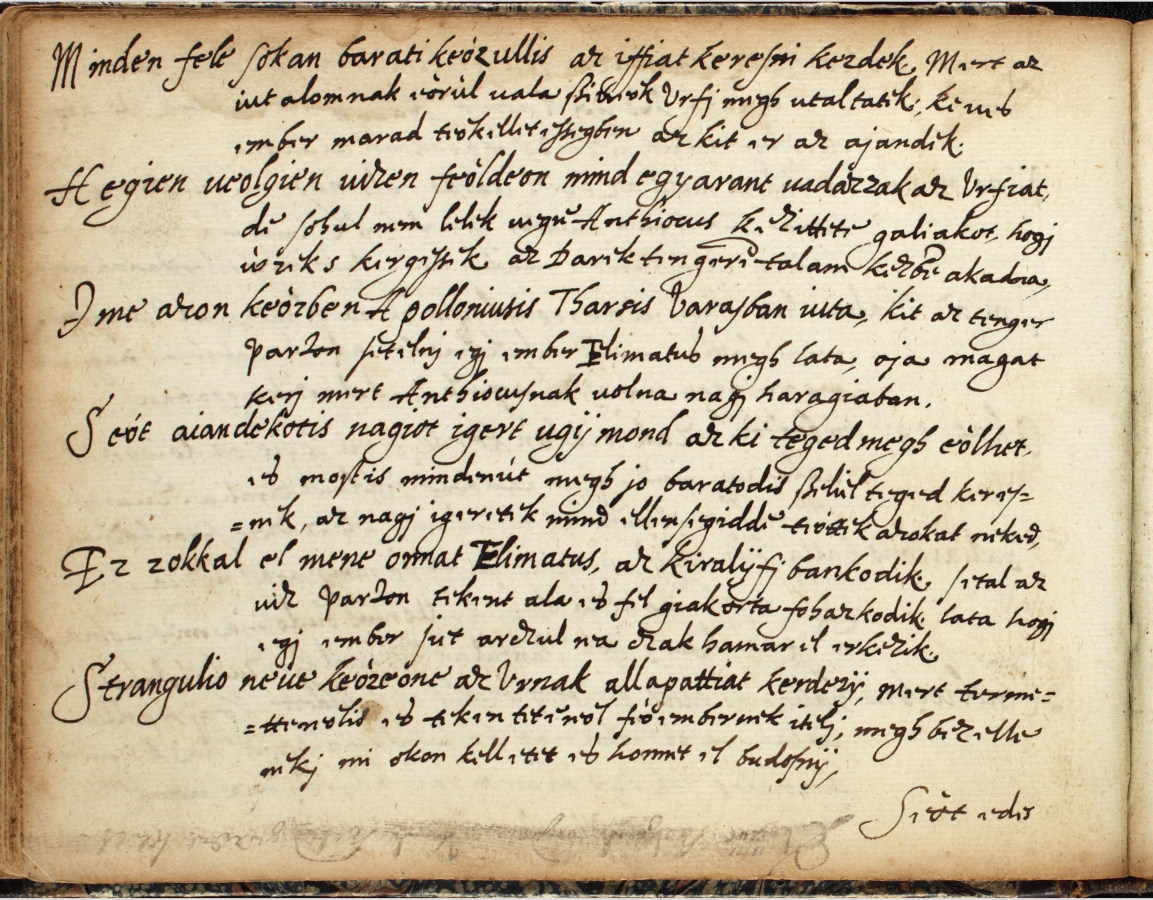 Minden fele sokan barati keózullis az iffiat keresni kezdek, Mert az
iutalomnak eòrúl uala Urfj megh utaltatik, keues
ember marad teókelletessegben az kit er az ajandek.
Hegien ueolgien uizen feòldeon mind egyarant uadàzzak az Urfiat,
de sohul nem lelek uegre Anthiocus keszittete galiakot, hogj
ùzzek s kergessek az Darek tengere talam kezbe akadna,
Ime azon keòzben Apolloniusis Tharsis Varasban iuta, kit az tenger
Parton setelnj egj ember Elimatus megh lata, oja magat
kerj mert Anthiocusnak uolna nagj haragiaban.
Seót aiandekotis nagiot igert ugij mond az ki teged megh eòlhet,
es mostis mindenút megh jo baratodis szeliel teged keres=
=nek, az nagj igeretek mind ellensegiddè teòttek azokat neked,
Ez zokkal el mene onnat Elimatus, az kiralÿfj bankodik, setal az
uiz Parton tekent ala es fel giakorta fohazkodik, lata hogj
egj ember jut arczul na czak hamar el erkezik.
Strangulio neue keòzeòne az Urnak allapattiat kerdezÿ, Mert terme=
=ttenolis es tekentetenól feò embernek itelj, megh bezelle
nekj mi okon kelletet es honnet el budosnÿ,
Sieòt edes